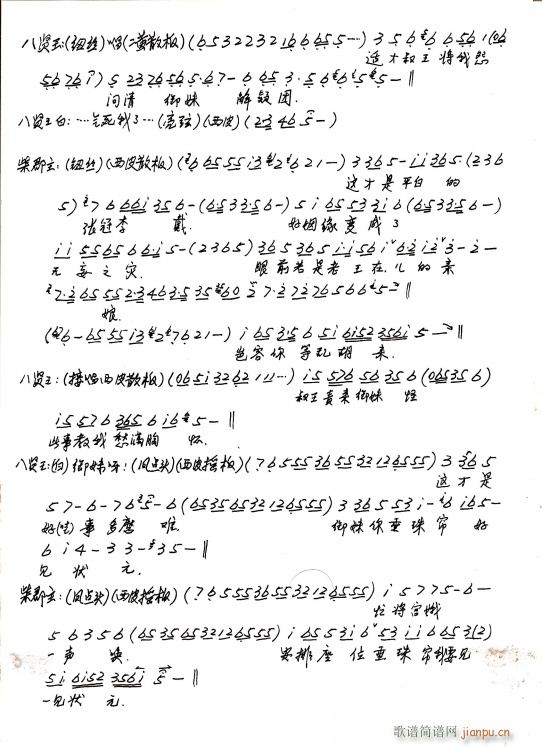 八贤王:(纽丝)唱(二黄散板)(6 5 3 2 2 3 2 1 6 6 6 5 5 - ···) 3 5 6 6 6 5 6 1 (06
这才叔王 将我怨
5 6 7 6 7) 5 2 3 7 6 5 6 5·6 7 - 6 6 5 3·5 6 6 5 5 - ‖
问清 御妹 解疑团.
八贤王白:···气死我了···(意弦)(西皮)(2 3 4 6 5 -)
柴郡主:(纽丝)(西皮散板)(6 6 5 5 5 i 3 2 6 2 1 -) 3 3 6 5 - i i 3 6 5·(2 3 6
这才是平白 的
5) 7 6 6 6 i 3 5 6 - (6 5 3 3·5 6 -) 5 i 6 5 5 3 2 i 6 (6 5 3 3 5 6 -)
张冠李 戴. 好姻缘变成了
i i 5 5 6 5 6 6 i 5 - (2 3 6 5) 3 6 5 3 6 5 i·i 5 6 i 6·2 i 2 3 - 2 -
无妄之灾. 眼前若是老王在, 儿的亲
7·2 6 5 5 5 2·3 4 6 3·5 3 5 6 0 2 7·2 7 2 7 6 5 6 6 5 - ‖
娘.
(6 - 6 5 5 5 i 3 2 7 6 2 1 -) i 6 5 3·5 6 5 i 6 i 5 2 3 5 6 i 5 - ‖
岂容你等乱胡来.
八贤王:(接唱西皮散板)(0 6 5 i 3 2 6 2 1 1 1 ···) i 5 5 7 6 5 6 3 5 6 (0 6 5 3 5 6)
叔王责来御妹 怪
i 5 5 7 6 3 6 5 6 i 6 5 - ‖
此事教我愁满胸 怀.
八贤王:(白)御妹呀:(凤点头)(西皮摇板)(7 6 5 5 5 3 6 5 5 3 2 1 2 6 5 5 5) 3 3 6 5
这才是
5 7 - 6 - 7 6 5 - 6 (6 5 3 5 6 5 3 2 1 2 6 5 5 5) 3 3 6 5 5 3 i - 6 i 6 5 -
好(吔)事多磨 难. 御妹你垂珠帘 好
6 i 4 - 3 3 - 3 5 - ‖
见状 元.
柴郡主:(凤点头)(西皮摇板)(7 6 5 5 5 3 6 5 5 3 2 1 2 6 5 5 5) i 5 7 7 5 - 6 -
忙将宫娥
5 6 3 5 6 (6 5 3 5 6 5 3 2 1 2 6 5 5 5) i 6 5 3 i 6 5 3 i i 6 6 5 3 (2)
一声 唤. 安排座 位垂珠 帘我要见
5 i 6 i 5 2 3 5 6 i 5 - ‖
一见状 元.
歌谱简谱网
www.jianpu.cn